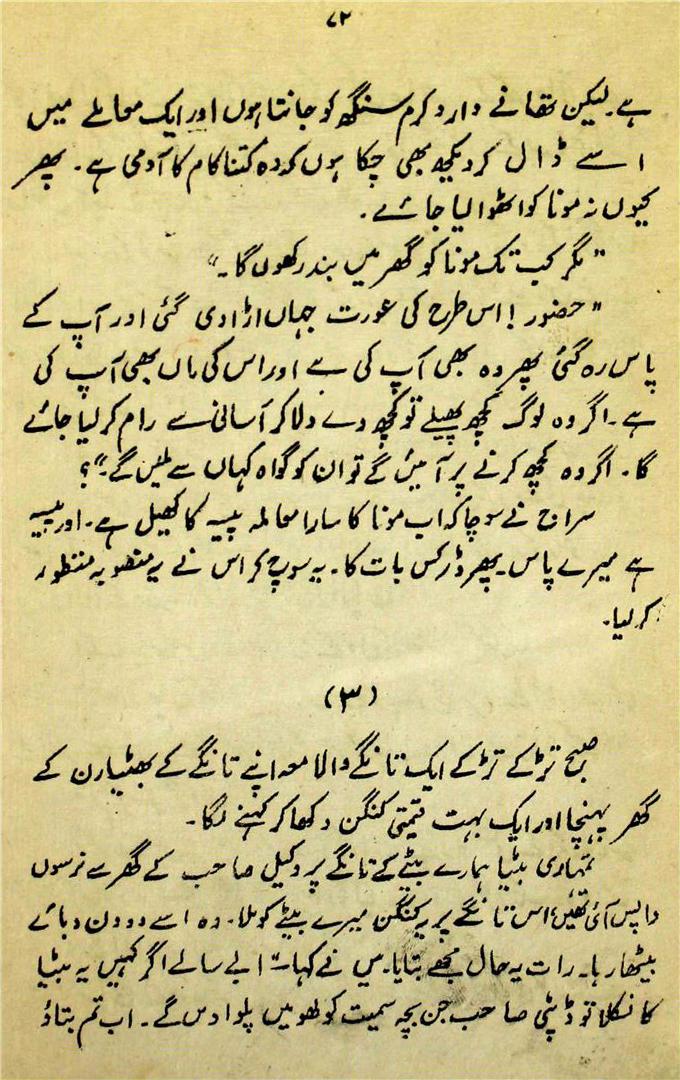 ۷۲
ہے۔ لیکن تھانے دار وکرم سنگھ کو جانتا ہوں اور ایک معاملے میں
اسے ڈال کر دیکھ بھی چکا ہوں کہ وہ کتنا کام کا آدمی ہے۔ پھر
کیوں نہ مونا کو اٹھوا لیا جائے۔
"مگر کب تک مونا کو گھر میں بند رکھوں گا۔"
"حضور! اس طرح کی عورت جہاں اڑا دی گئی اور آپ کے
پاس رہ گئی پھر وہ بھی آپ کی ہے اور اس کی ماں بھی آپ کی
ہے۔ اگر وہ لوگ کچھ پھیلے تو کچھ دے دلا کر آسانی سے رام کر لیا جائے
گا۔ اگر وہ کچھ کرنے پر آئیں گے تو ان کو گواہ کہاں سے ملیں گے۔"؟
سراج نے سوچا کہ اب مونا کا سارا معاملہ پیسہ کا کھیل ہے۔ اور پیسہ
ہے میرے پاس۔ پھر ڈر کس بات کا۔ یہ سوچ کر اس نے یہ منصوبہ منظور
کر لیا۔
(۳)
صبح تڑکے تڑکے ایک تانگے والا معہ اپنے تانگے کے بھٹیارن کے
گھر پہنچا اور ایک بہت قیمتی کنگن دکھا کر کہنے لگا۔
تمہاری بٹیا ہمارے بیٹے کے تانگے پر وکیل صاحب کے گھر سے نرسوں
واپس آئی تھیں، اس تانگے پر یہ کنگن میرے بیٹے کو ملا۔ وہ اسے دو دن دبائے
بیٹھا رہا۔ رات یہ حال مجھے بتایا۔ میں نے کہا۔ "ابے سالے اگر کہیں یہ بٹیا
کا نکلا تو ڈپٹی صاحب جن بچہ سمیت کولھو میں پلوا دیں گے۔ اب تم بتاؤ